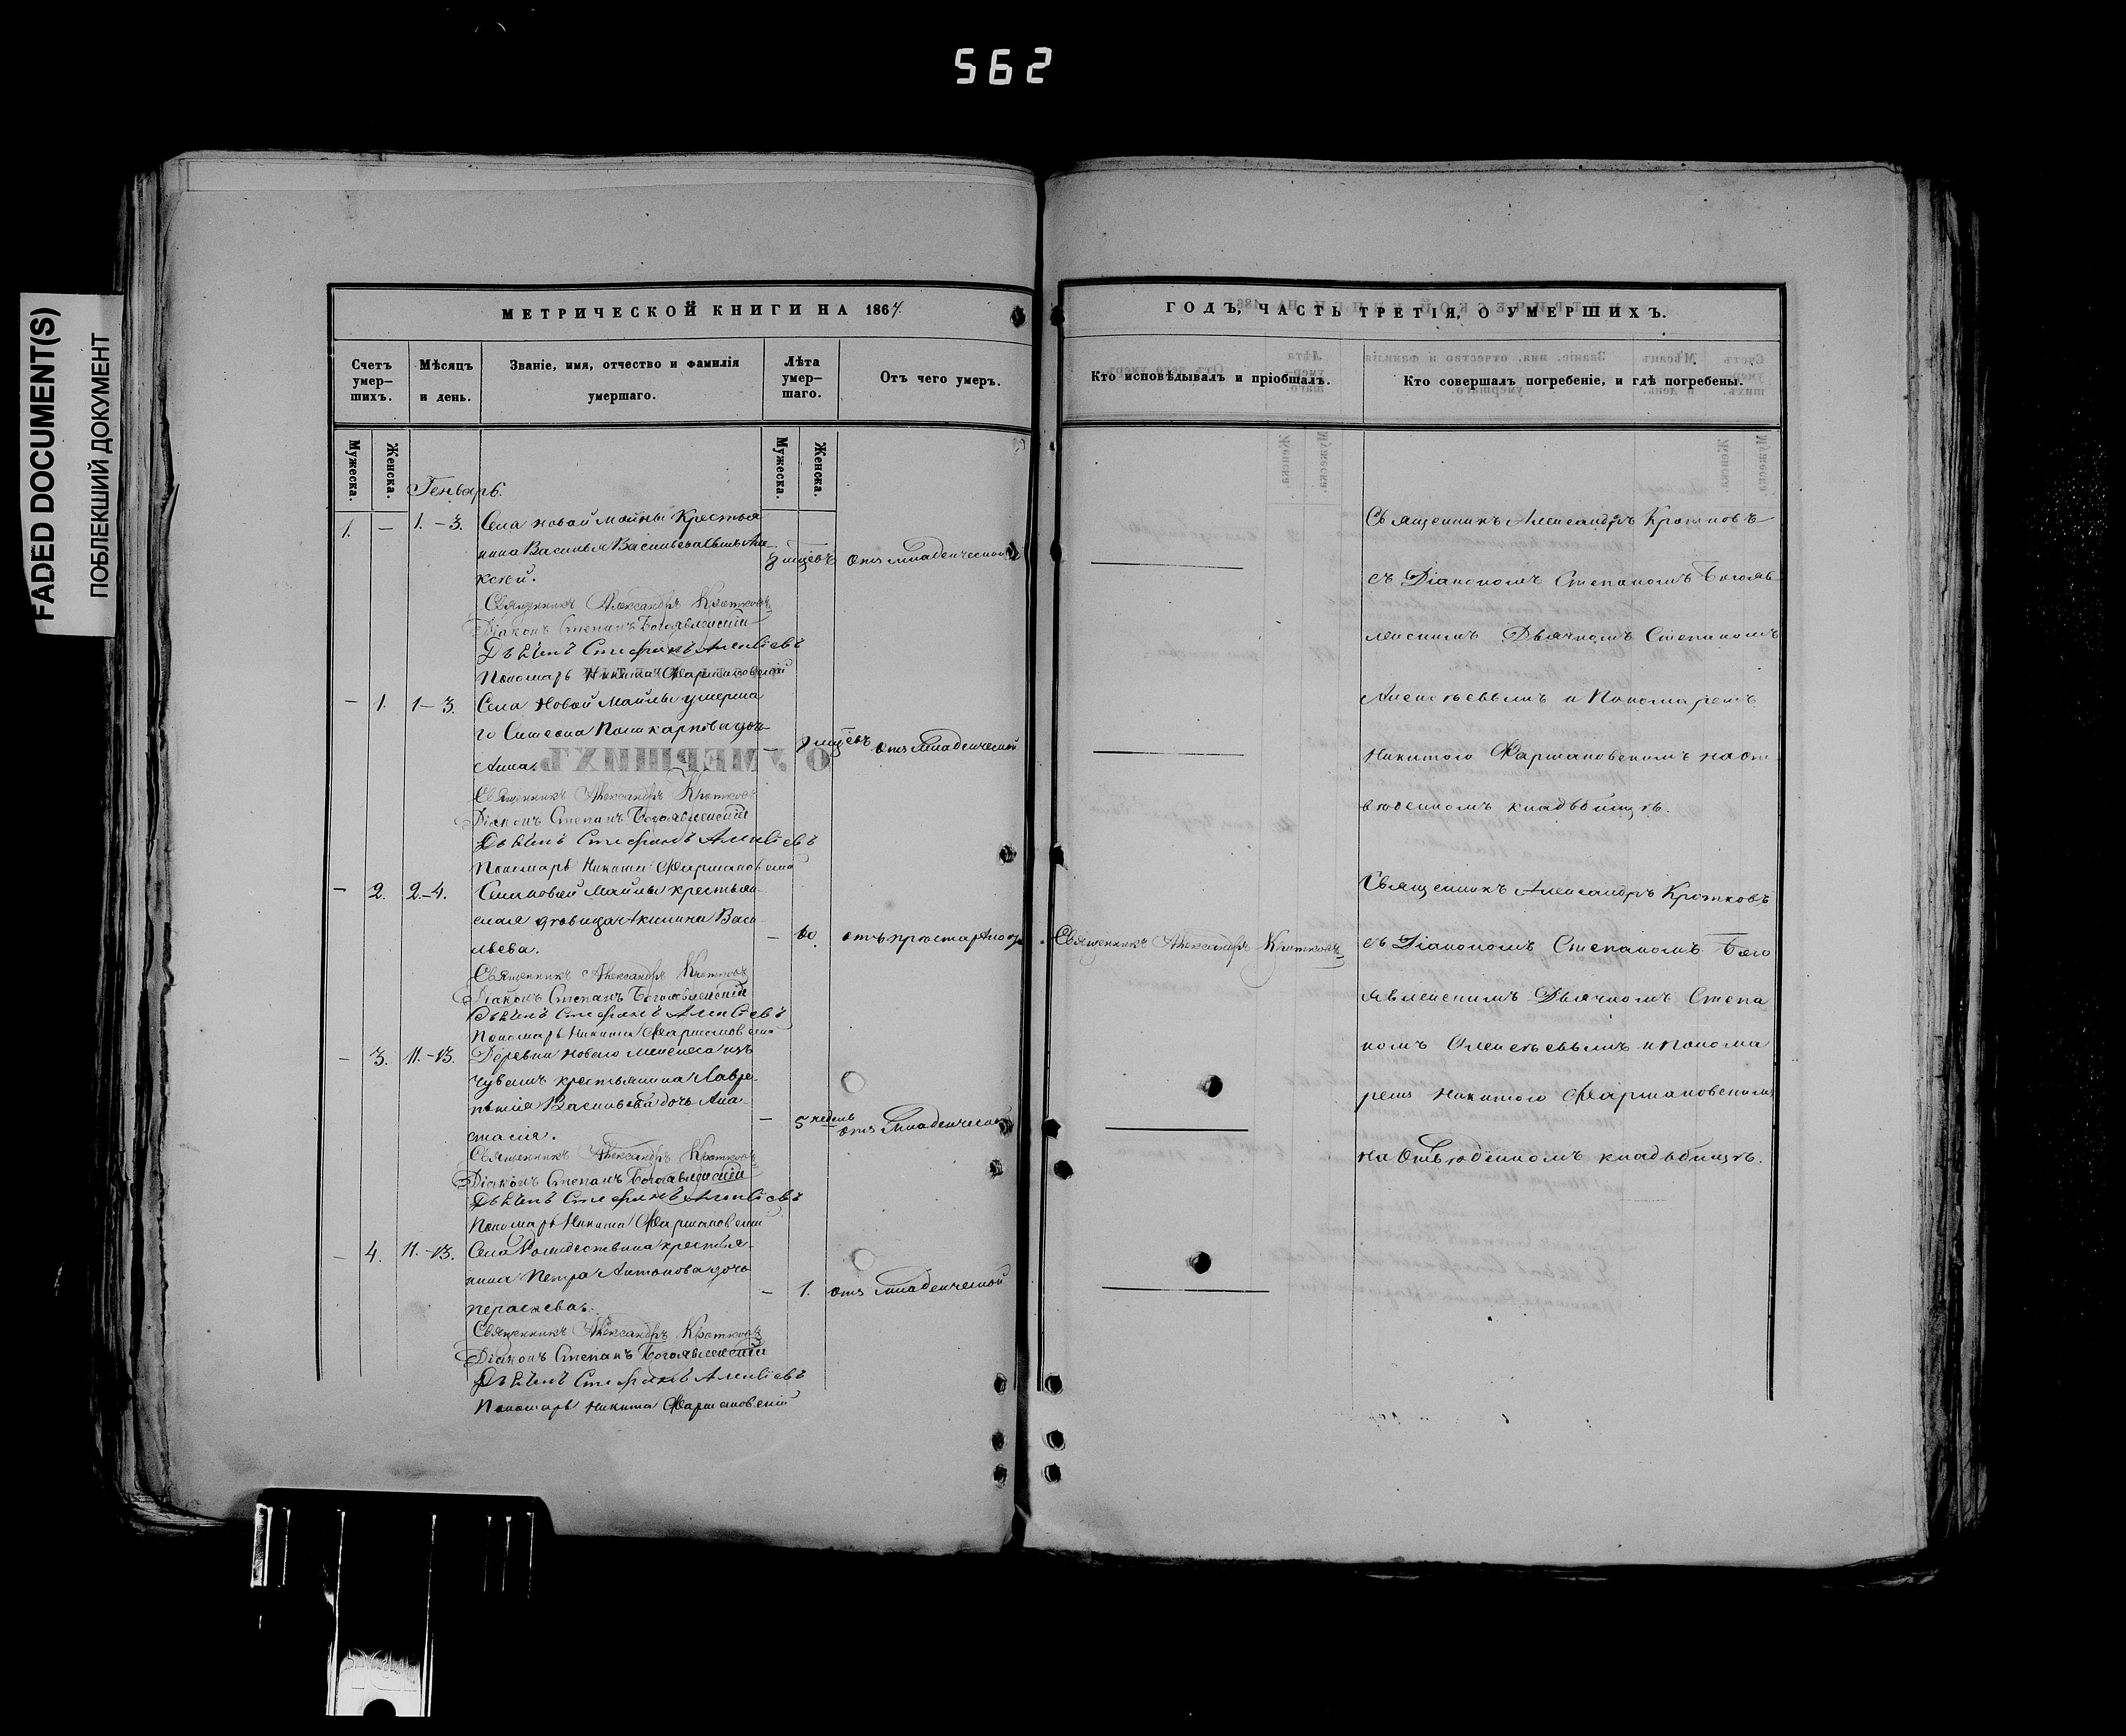 562
FADED DOCUMENT(S)
ПОБЛЕКШИЙ ДОКУМЕНТ
МЕТРИЧЕСКОЙ КНИГИ НА 1864
Счетъ умер-шихъ.
Мѣсяцъ и день.
Званіе, имя, отчество и фамилія умершаго.
Лѣта умер-шаго.
Отъ чего умеръ.
Мужеска.
Женска.
Мужеска.
Женска.
Генварь.
1. — 1.-3. Села новой Майны Крестья
нина Василья Васильева сынъ Але
ксѣй.
8 мцевъ отъ младенческой
Священникъ Александръ Кротковъ
Діаконъ Степанъ Богоявленскій
Дьячекъ Стефанъ Алексѣевъ
Пономарь Никита Фармаковскій
— 1. 1-3. Села Новой Майны умерша
го Поликарпова дочь
Анна.
— 8 мцевъ отъ младенческой
Священникъ Александръ Кротковъ
Діаконъ Степанъ Богоявленскій
Дьячекъ Стефанъ Алексѣевъ
Пономарь Никита Фармаковскій
— 2. 2.-4. Села новой Майны крестьян-
ская дѣвица Акилина Васи
льева.
— 60. отъ простары
Священникъ Александръ Кротковъ
Діаконъ Степанъ Богоявленскій
Дьячекъ Стефанъ Алексѣевъ
Пономарь Никита Фармаковскій
— 3. 11.-13. Деревни Новаго изъ
чувашъ крестьянина Лавре-
нтія Васильева дочь Ана-
стасія.
— 5 недель отъ младенческой
Священникъ Александръ Кротковъ
Діаконъ Степанъ Богоявленскій
Дьячекъ Стефанъ Алексѣевъ
Пономарь Никита Фармаковскій
— 4. 11.-13. Села Рождествина крестья-
нина Петра Антонова дочь
Параскева.
— 1. отъ младенческой
Священникъ Александръ Кротковъ
Діаконъ Степанъ Богоявленскій
Дьячекъ Стефанъ Алексѣевъ
Пономарь Никита Фармаковскій
ГОДЪ, ЧАСТЬ ТРЕТІЯ, О УМЕРШИХЪ.
Кто исповѣдывалъ и пріобщалъ.
Кто совершалъ погребеніе, и гдѣ погребены.
Священникъ Александръ Кротковъ
съ Діакономъ Степаномъ Богояв
ленскимъ Дьячкомъ Степаномъ
Алексѣевымъ и Пономаремъ
Никитою Фармаковскимъ на от
веденномъ кладбищѣ.
Священникъ Александръ Кротковъ
Священникъ Александръ Кротковъ
съ Діакономъ Степаномъ Бого
явленскимъ Дьячкомъ Степа
номъ Алексѣевымъ и Понома
ремъ Никитою Фармаковскимъ
на Отведенномъ кладбищѣ.